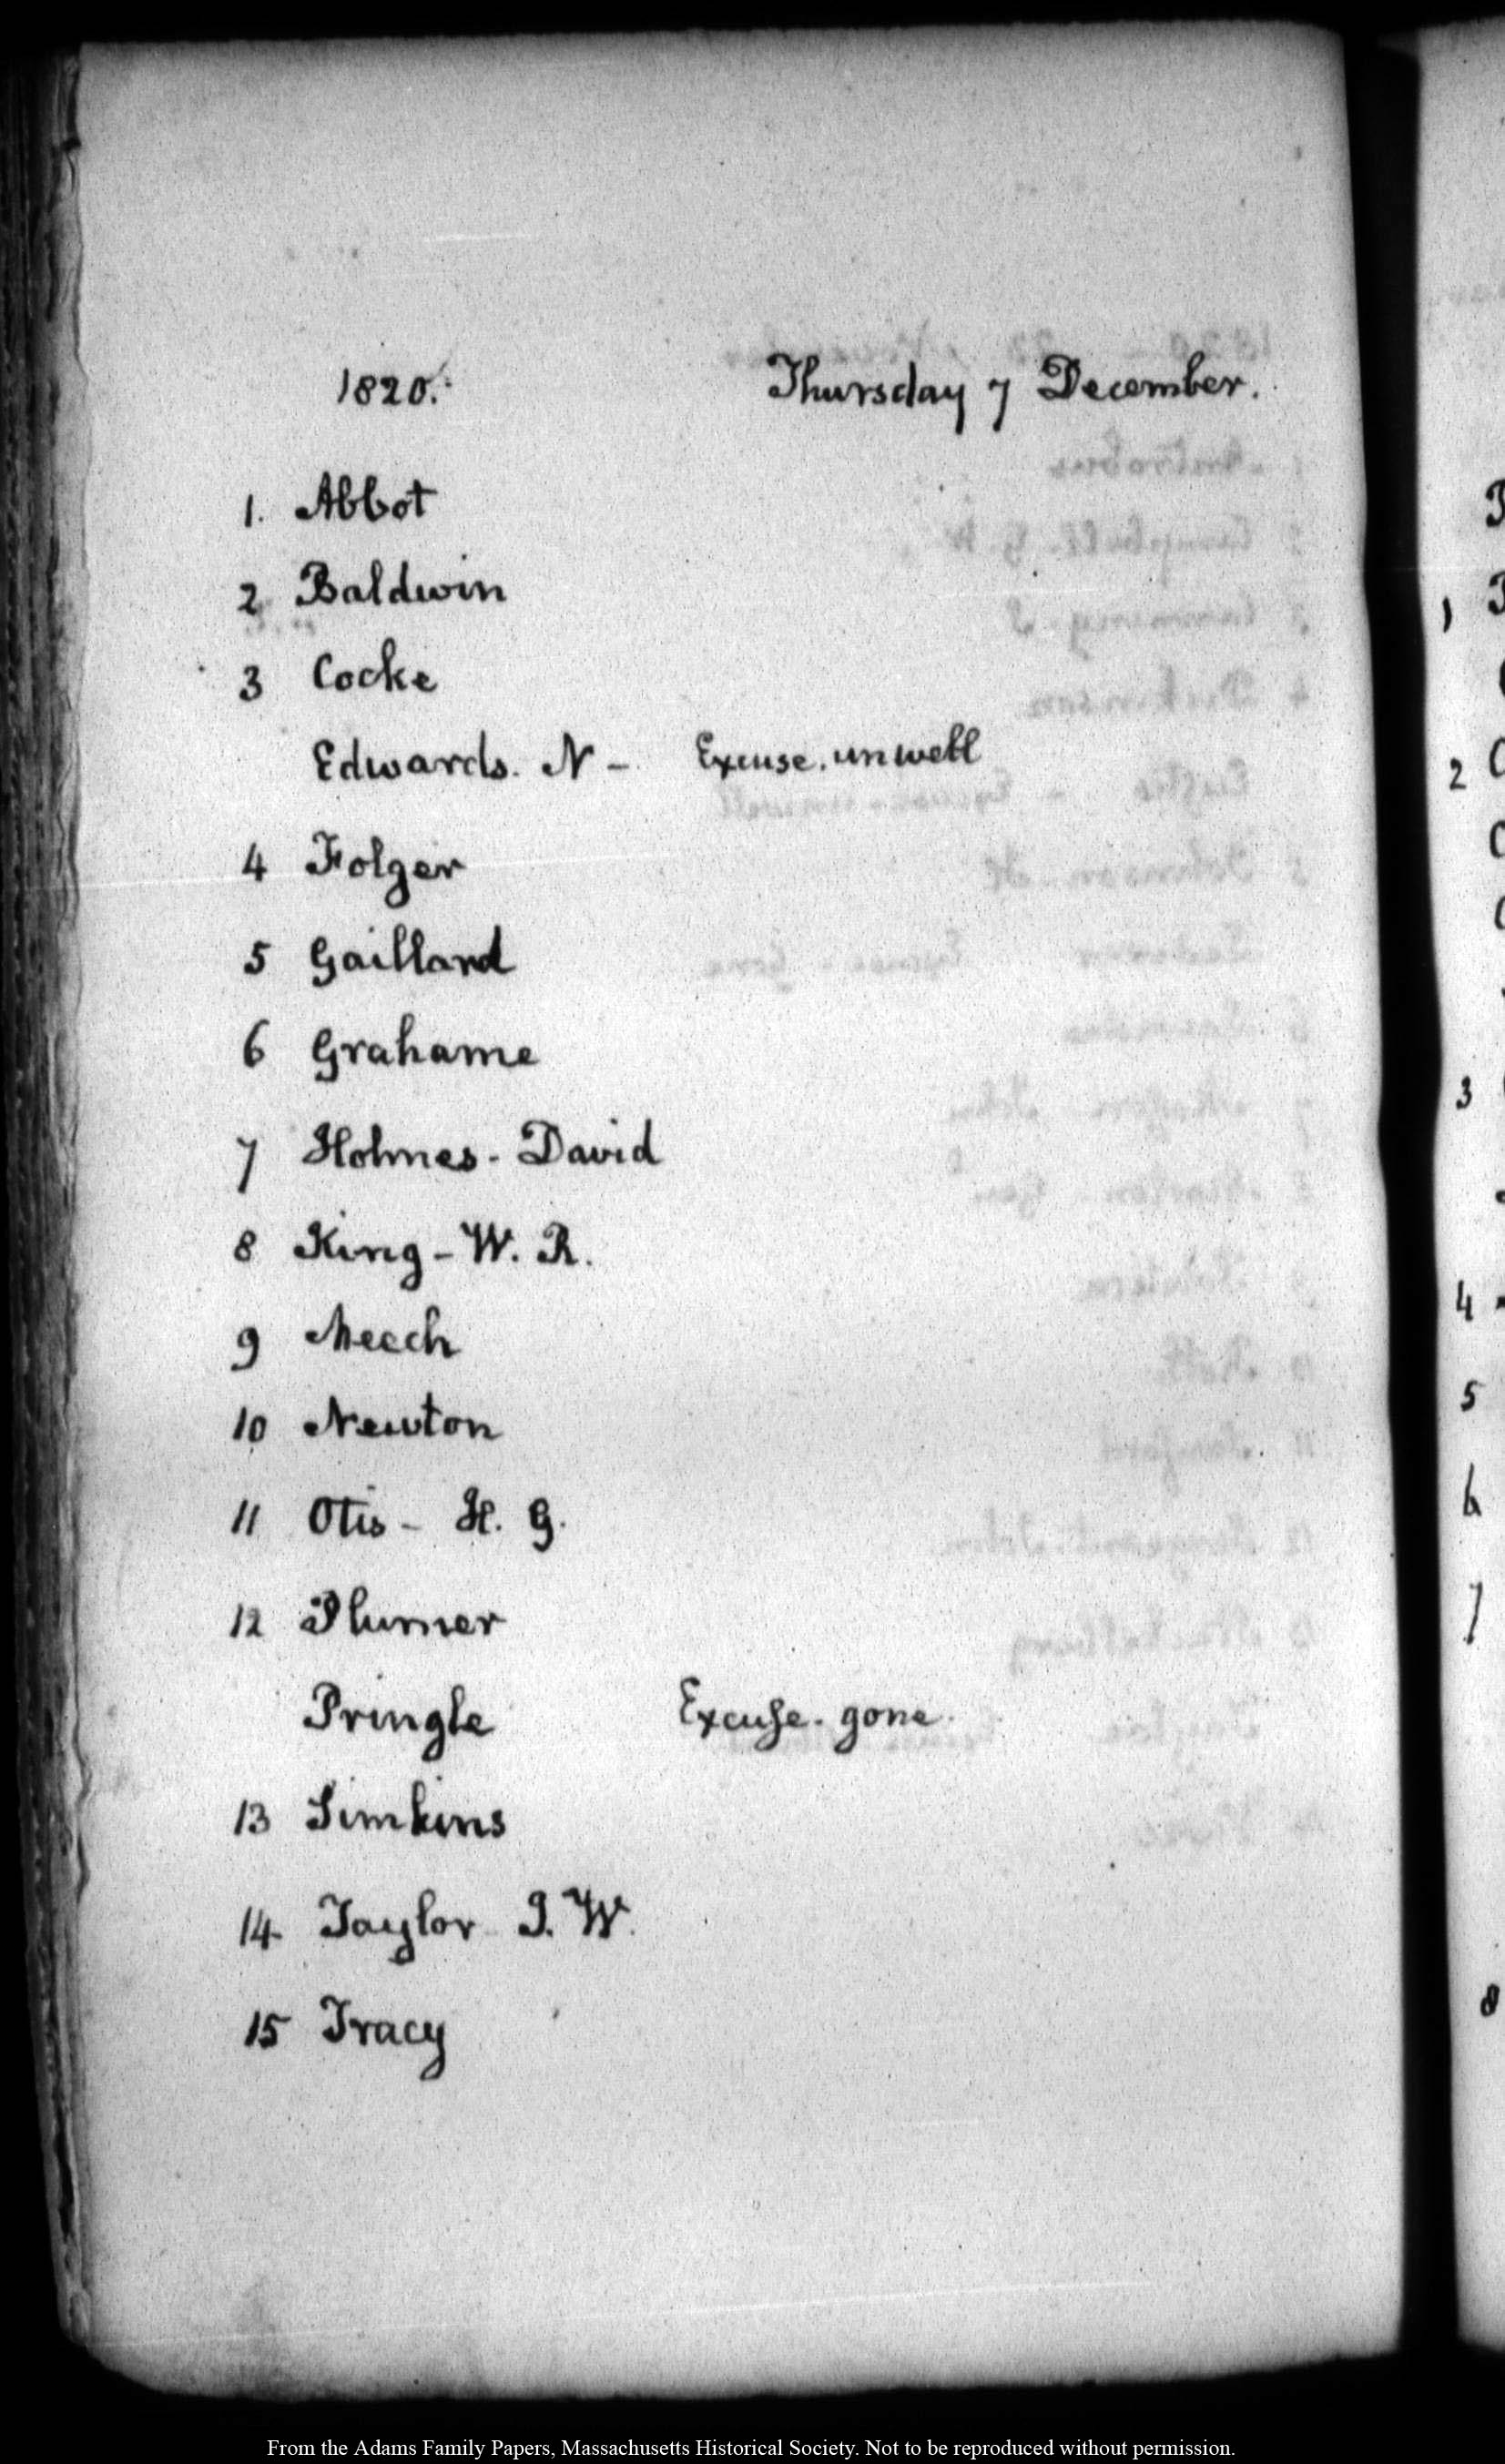 1820. Thursday 7 December.
1. Abbot
2 Baldwin
3 Cocke
Edwards. N - Excuse. unwell
4 Folger
5 Gaillard
6 Grahame
7 Holmes - David
8 King - W. R.
9 Meech
10 Newton
11 Otis - H. G.
12 Plumer
Pringle Excuse. gone.
13 Simkins
14 Taylor J. W.
15 Tracy
1
2
3
4
5
6
7
8
From the Adams Family Papers, Massachusetts Historical Society. Not to be reproduced without permission.